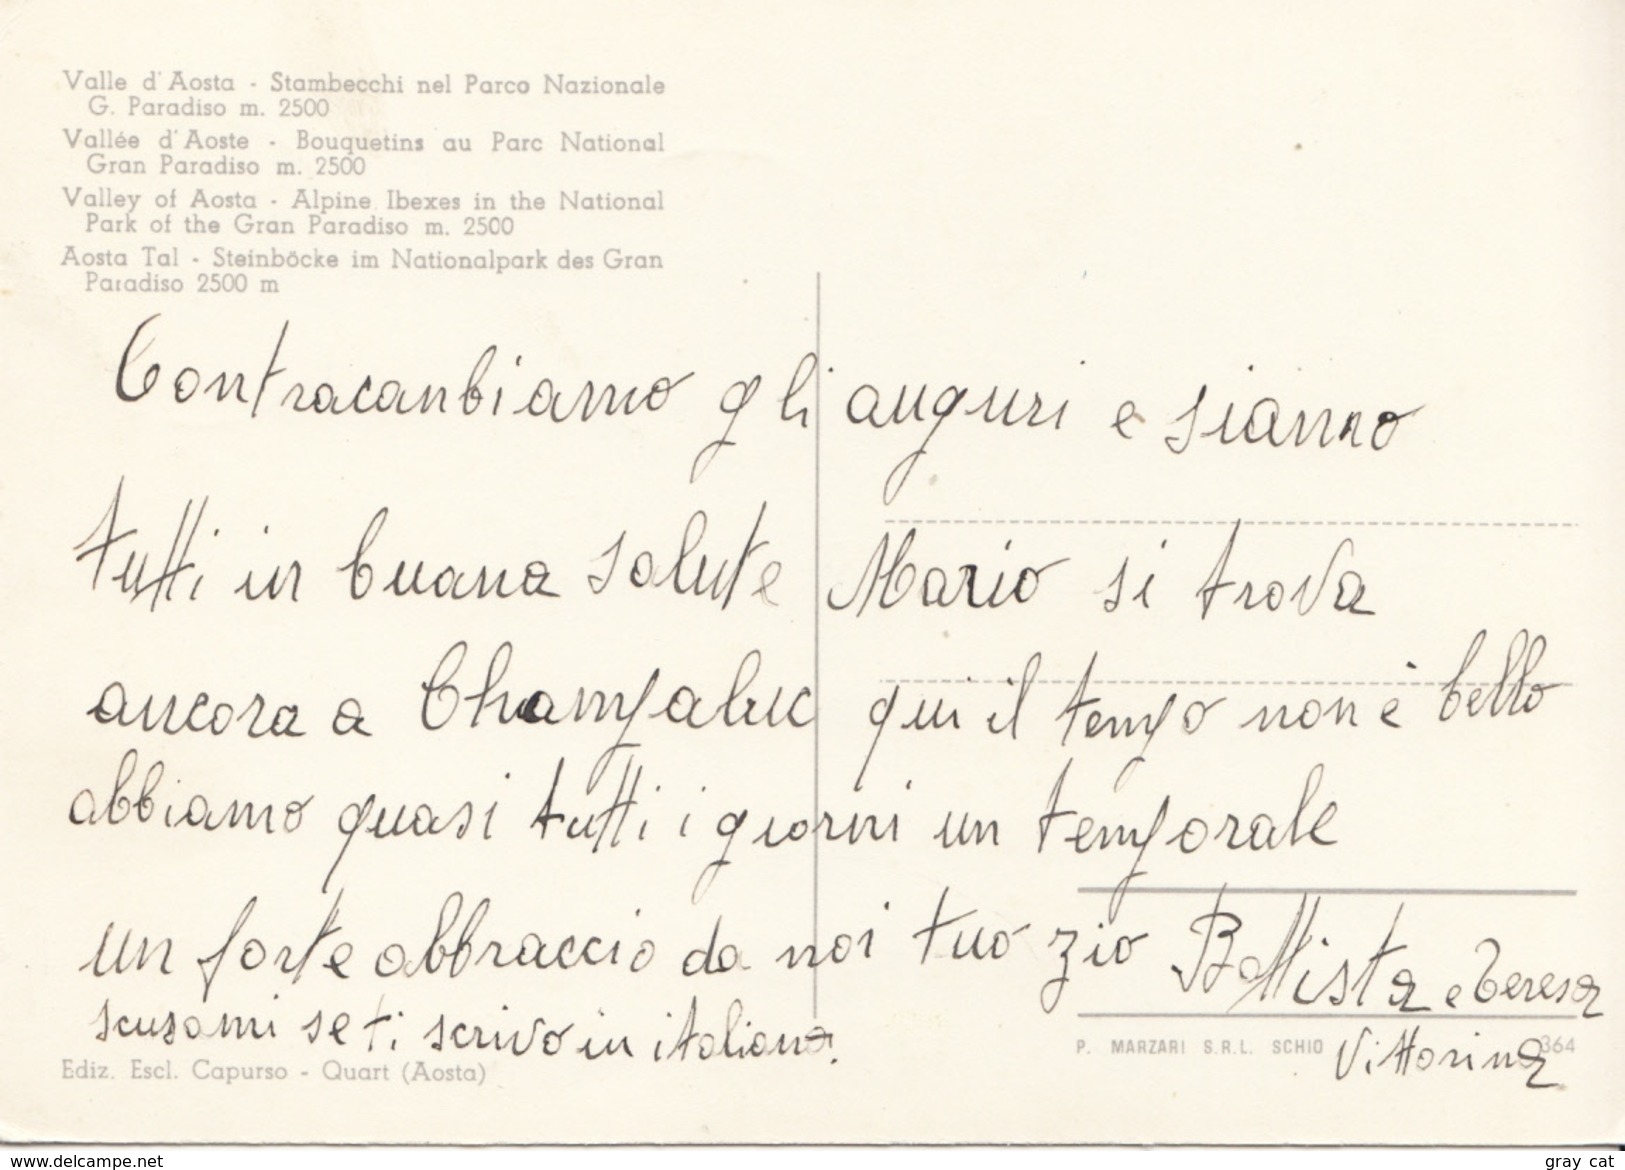 Valle d'Aosta - Stambecchi nel Parco Nazionale
G. Paradiso m. 2500
Vallée d'Aoste - Bouquetins au Parc National
Gran Paradiso m. 2500
Valley of Aosta - Alpine Ibexes in the National
Park of the Gran Paradiso m. 2500
Aosta Tal - Steinböcke im Nationalpark des Gran
Paradiso 2500 m
Contracanbiamo gli auguri e siamo
tutti in buana salute Mario si trova
ancora a Champaluc qui il tempo non è bello
abbiamo quasi tutti i giorni un temporale
un forte abbraccio da noi tuo zio Battista e Teresa
scusami se ti scrivo in italiano. Vittorina
Ediz. Escl. Capurso - Quart (Aosta)
P. MARZARI S.R.L. SCHIO 364
www.delcampe.net
gray cat